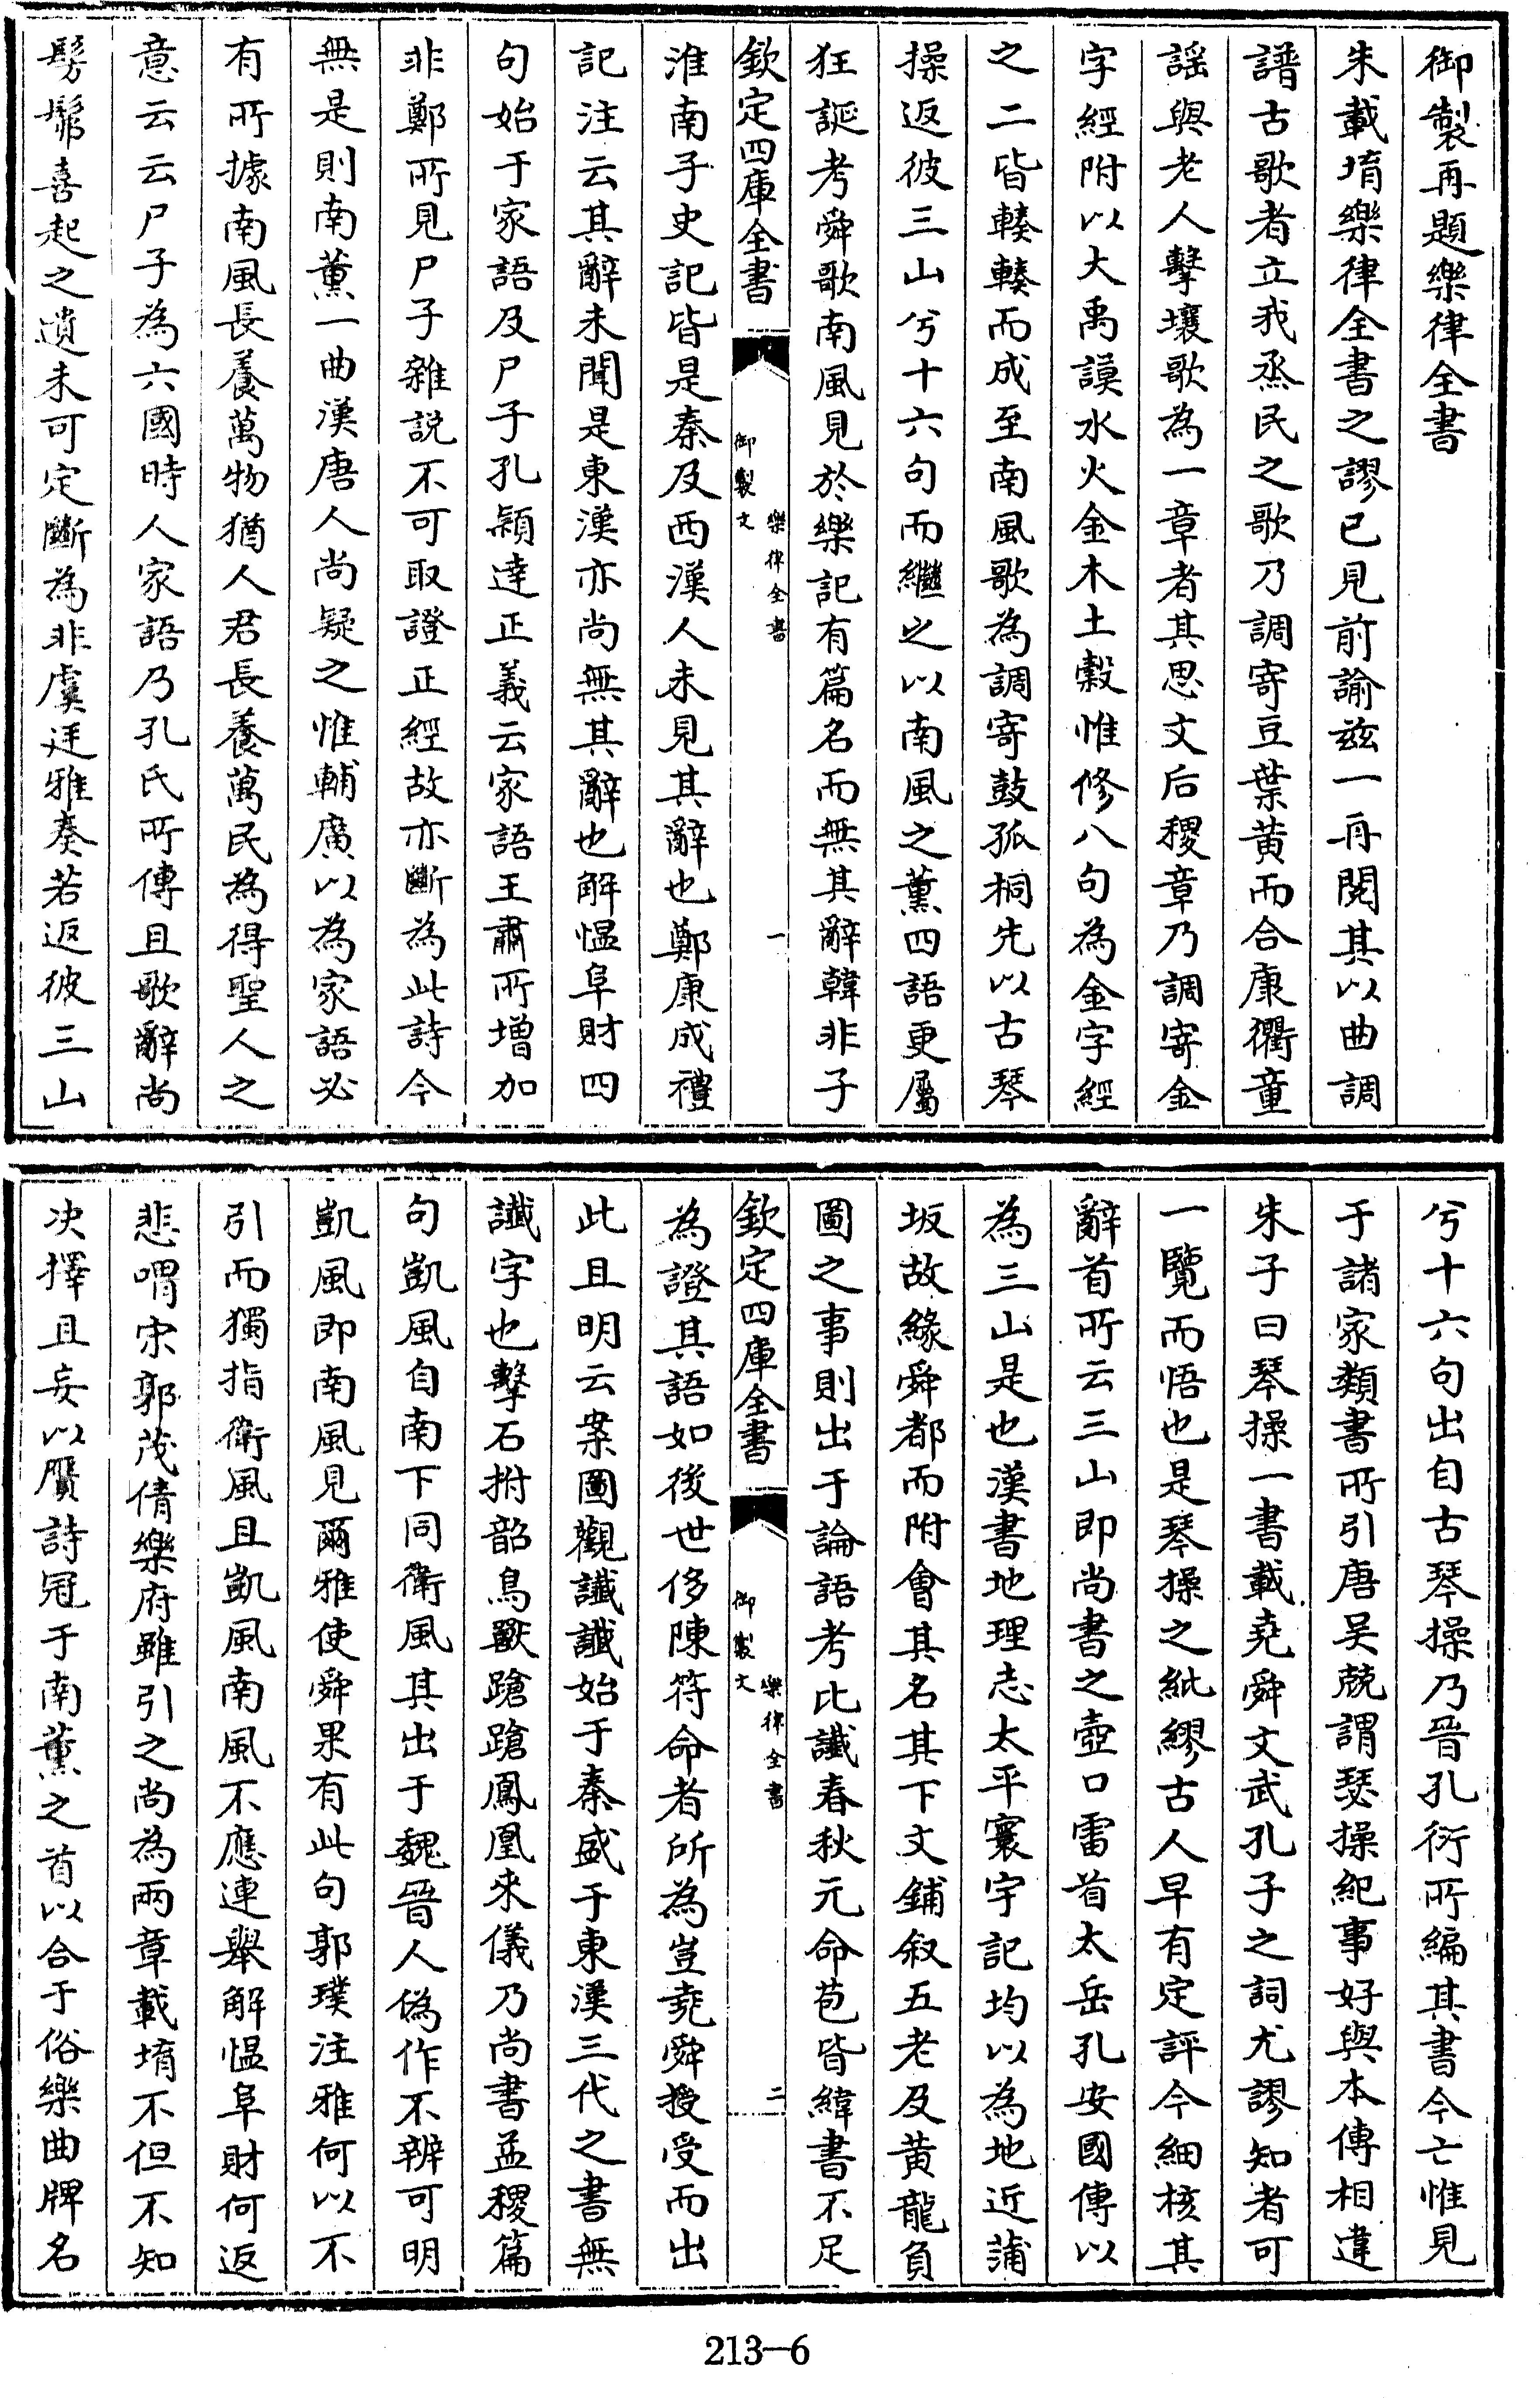 御製再題樂律全書
朱載堉樂律全書之謬已見前諭兹一再閱其以曲調
譜古歌者立我烝民之歌乃調寄豆葉黃而合康衢童
謡與老人擊壤歌為一章者其思文后稷章乃調寄金
字經附以大禹謨水火金木土穀惟修八句為金字經
之二皆轃轃而成至南風歌為調寄鼓孤桐先以古琴
操返彼三山兮十六句而繼之以南風之薰四語更屬
狂誕考舜歌南風見於樂記有篇名而無其辭韓非子
欽定四庫全書
樂律全書
御製文
一
淮南子史記皆是秦及西漢人未見其辭也鄭康成禮
記注云其辭未聞是東漢亦尚無其辭也解慍阜財四
句始于家語及尸子孔穎達正義云家語王肅所增加
非鄭所見尸子雜説不可取證正經故亦斷為此詩今
無是則南薰一曲漢唐人尚疑之惟輔廣以為家語必
有所據南風長養萬物猶人君長養萬民為得聖人之
意云云尸子為六國時人家語乃孔氏所傳且歌辭尚
髣髴喜起之遺未可定斷為非虞廷雅奏若返彼三山
兮十六句出自古琴操乃晉孔衍所編其書今亡惟見
于諸家類書所引唐吴兢謂琴操紀事好與本傳相違
朱子曰琴操一書載堯舜文武孔子之詞尤謬知者可
一覽而悟也是琴操之紕繆古人早有定評今細核其
辭首所云三山即尚書之壺口雷首太岳孔安國傳以
為三山是也漢書地理志太平寰宇記均以為地近蒲
坂故緣舜都而附會其名其下文鋪叙五老及黃龍負
圖之事則出于論語考比讖春秋元命苞皆緯書不足
欽定四庫全書
樂律全書
御製文
二
為證其語如後世侈陳符命者所為豈堯舜授受而出
此且明云案圖觀讖讖始于秦盛于東漢三代之書無
讖字也擊石拊韶鳥獸蹌蹌鳳凰來儀乃尚書益稷篇
句凱風自南下同衛風其出于魏晉人偽作不辨可明
凱風即南風見爾雅使舜果有此句郭璞注雅何以不
引而獨指衛風且凱風南風不應連舉解慍阜財何返
悲喟宋郭茂倩樂府雖引之尚為兩章載堉不但不知
決擇且妄以贋詩冠于南薰之首以合于俗樂曲牌名
213-6